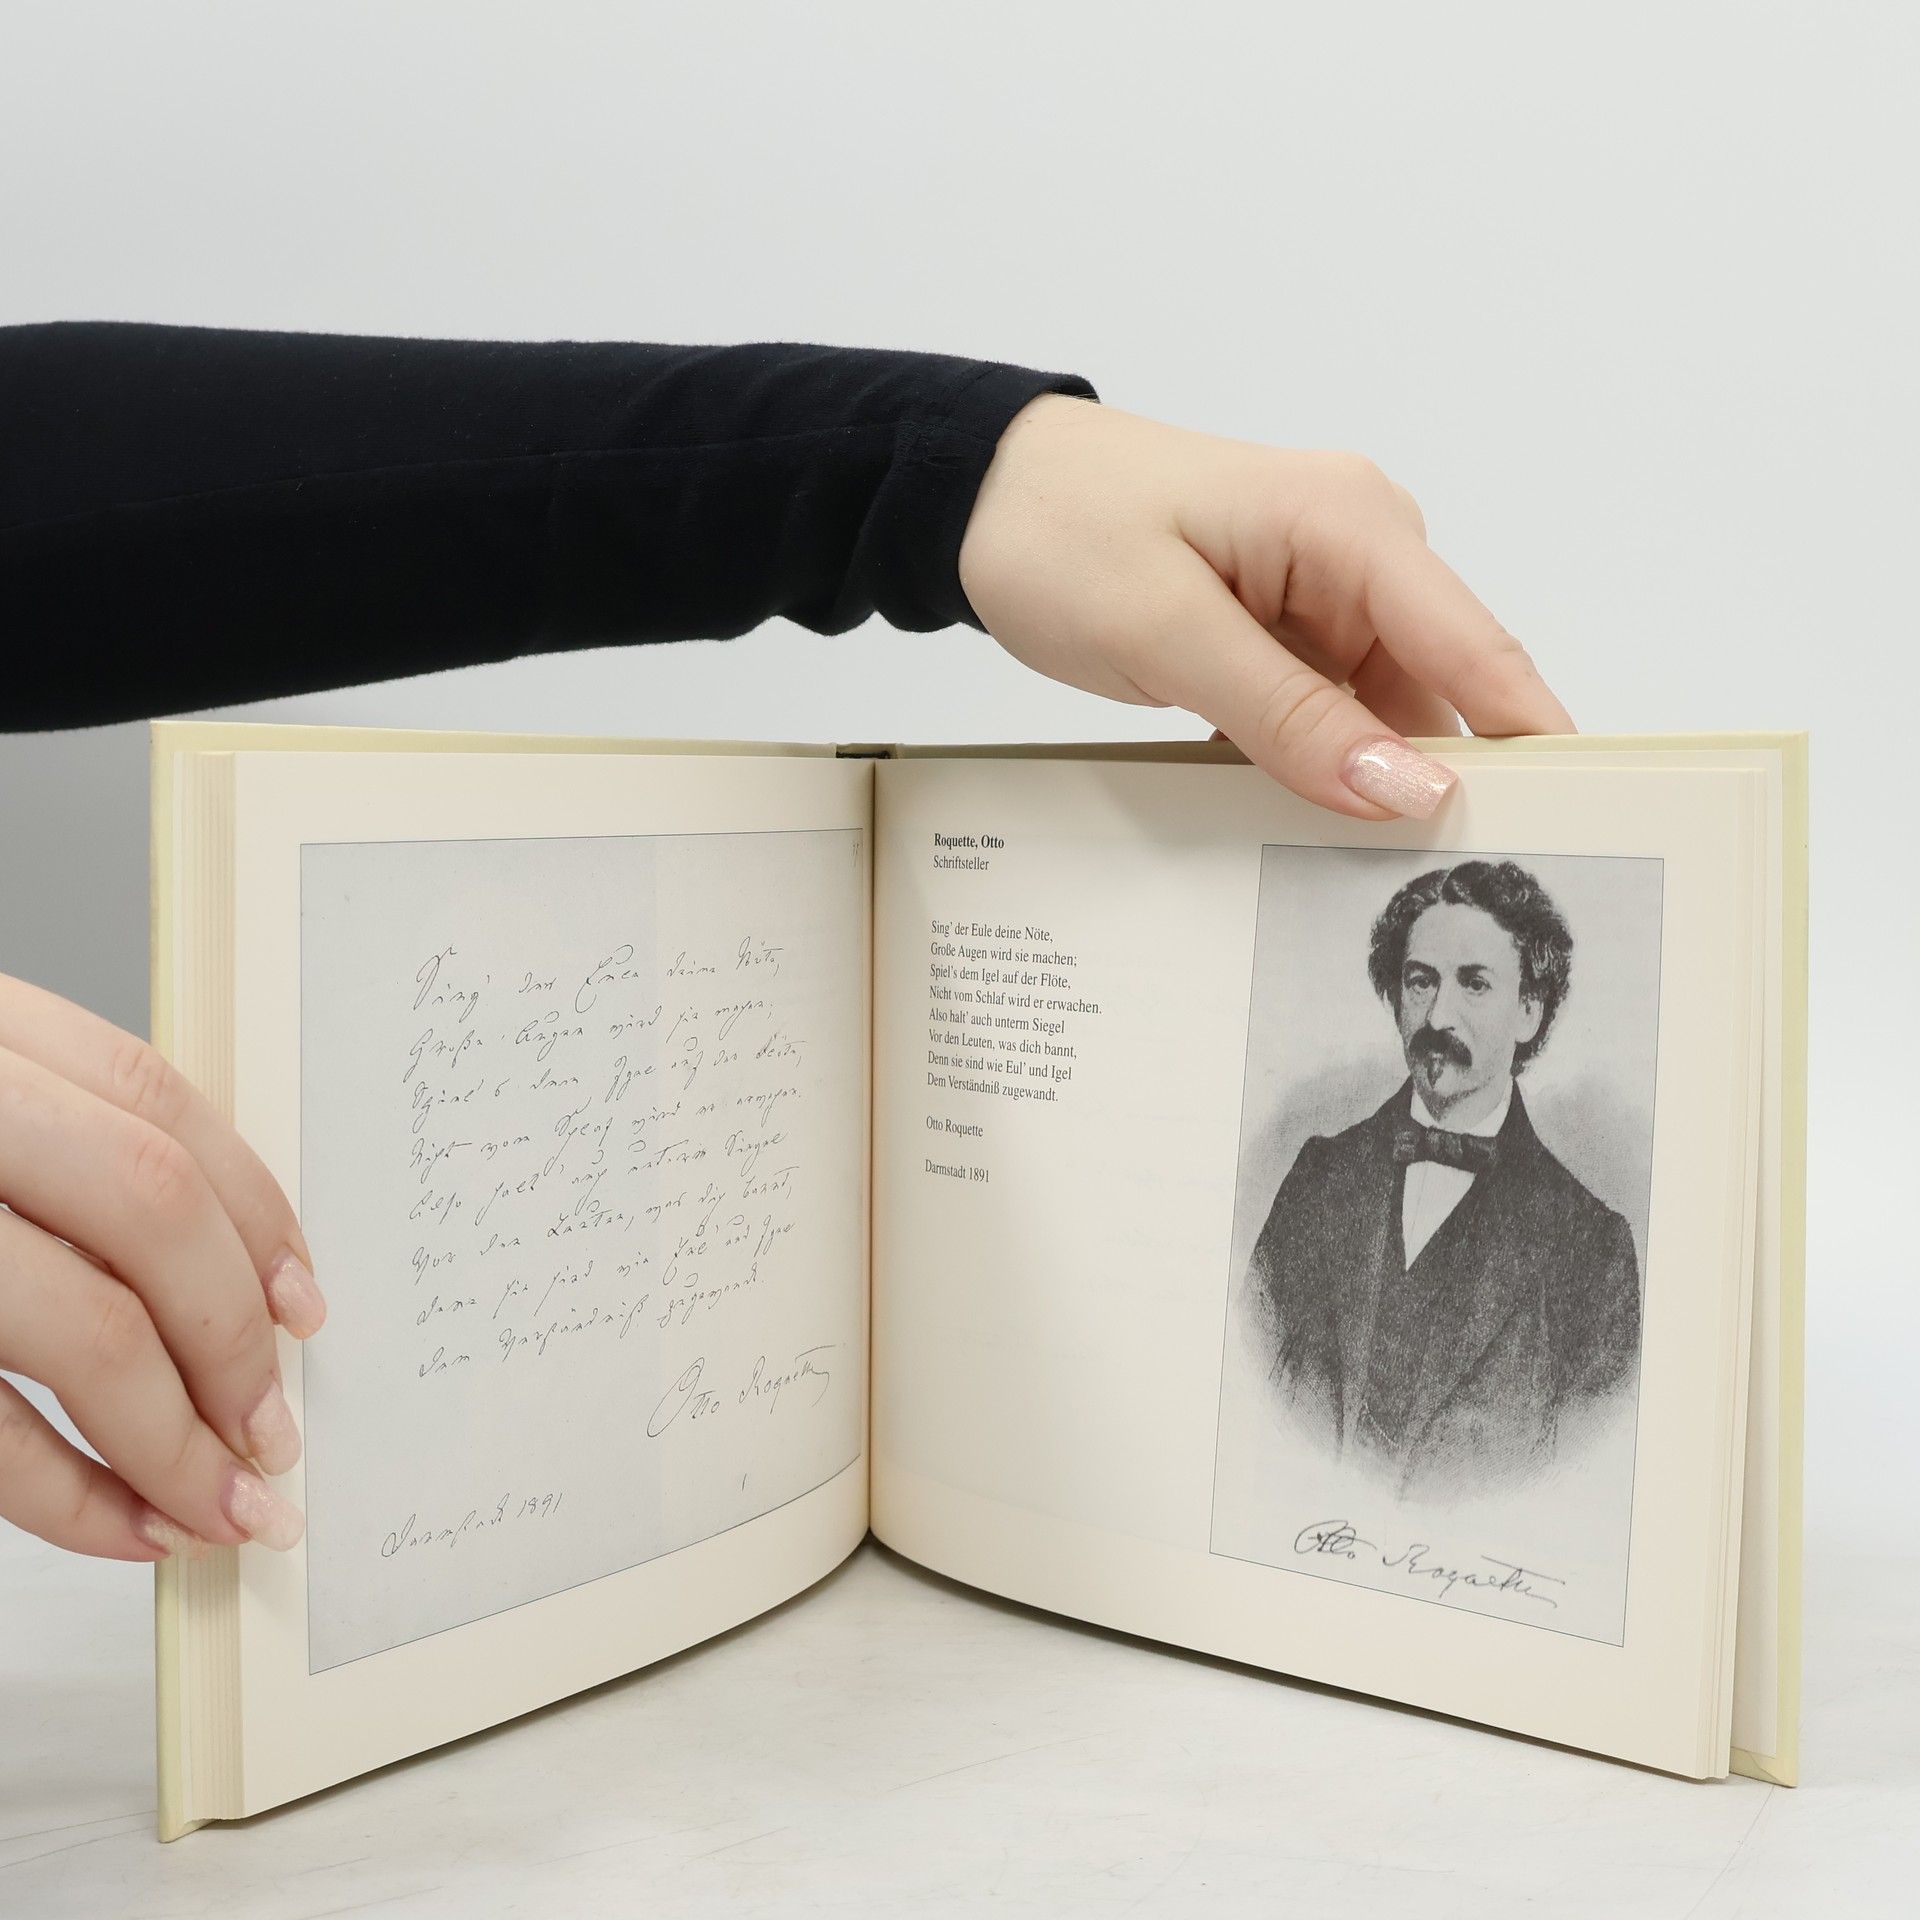 Sing' der Eule deine Nöte,
Große Augen wird sie machen;
Spiel's dem Igel auf der Flöte,
Nicht vom Schlaf wird er erwachen.
Also halt' auch unterm Siegel
Vor den Leuten, was dich bannt,
Denn sie sind wie Eul' und Igel
Dem Verständniß zugewandt.
Otto Roquette
Darmstadt 1891
Roquette, Otto
Schriftsteller
Sing' der Eule deine Nöte,
Große Augen wird sie machen;
Spiel's dem Igel auf der Flöte,
Nicht vom Schlaf wird er erwachen.
Also halt' auch unterm Siegel
Vor den Leuten, was dich bannt,
Denn sie sind wie Eul' und Igel
Dem Verständniß zugewandt.
Otto Roquette
Darmstadt 1891
Otto Roquette